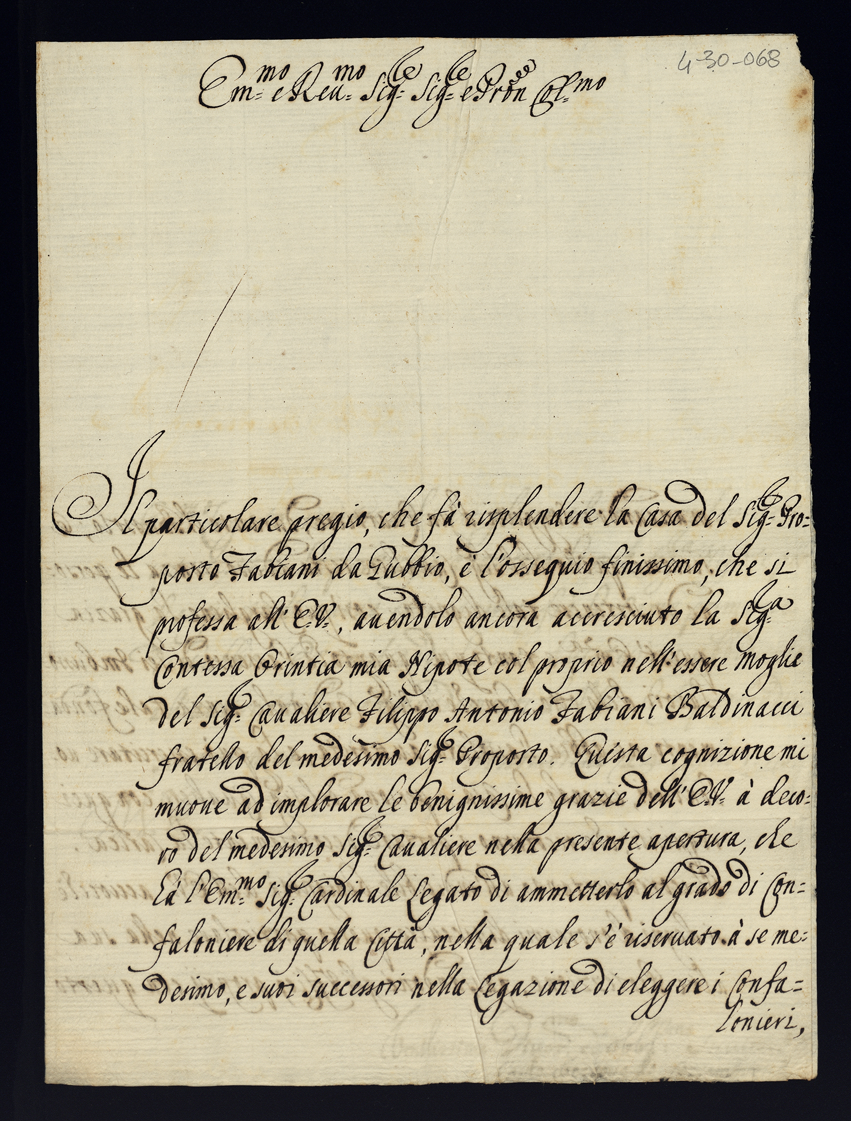 4-30-068
Em:mo e Reu:mo Sig:re Sig:re e Pron Col:mo
Il particolare pregio, che fà risplendere la Casa del Sig:r Pro=
posto Fabiani da Gubbio, è l'ossequio finissimo, che si
professa all' E.V., auendolo ancora accresciuto la Sig:ra
Contessa Orintia mia Nipote col proprio nell'essere moglie
del Sig:r Caualiere Filippo Antonio Fabiani Baldinacci
fratello del medesimo Sig:r Proposto. Questa cognizione mi
muoue ad implorare le benignissime grazie dell' E.V. à deco=
ro del medesimo Sig:r Caualiere nella presente apertura, che
hà l'Em:mo Sig:r Cardinale Legato di ammetterlo al grado di Con=
faloniere di quella Città, nella quale s'è riseruato à se me=
desimo, e suoi successori nella Legazione di eleggere i Confa=
lonieri,